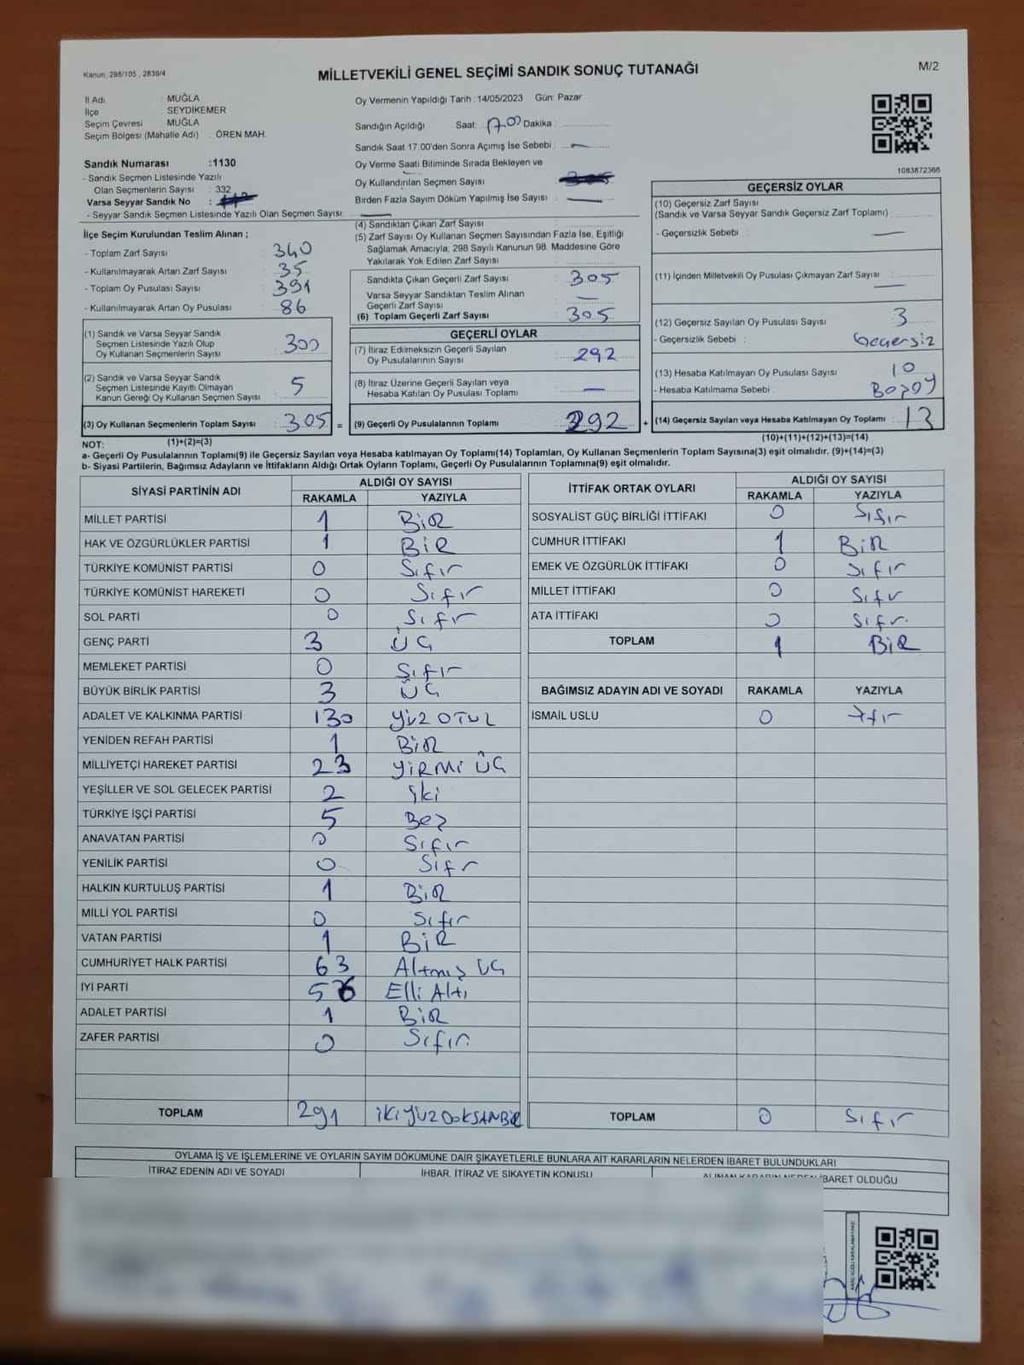 Kanun, 298/105 , 2839/4
MİLLETVEKİLİ GENEL SEÇİMİ SANDIK SONUÇ TUTANAĞI
M/2
İl Adı MUĞLA
İlçe SEYDİKEMER
Seçim Çevresi MUĞLA
Seçim Bölgesi (Mahalle Adı) : ÖREN MAH.
Sandık Numarası :1130
- Sandık Seçmen Listesinde Yazılı
Olan Seçmenlerin Sayısı : 332
Varsa Seyyar Sandık No :
- Seyyar Sandık Seçmen Listesinde Yazılı Olan Seçmen Sayısı
Oy Vermenin Yapıldığı Tarih :14/05/2023 Gün: Pazar
Sandığın Açıldığı Saat: 17.00 Dakika :
Sandık Saat 17.00'den Sonra Açımış İse Sebebi : —
Oy Verme Saati Bitiminde Sırada Bekleyen ve
Oy Kullandırılan Seçmen Sayısı
Birden Fazla Sayım Döküm Yapılmış İse Sayısı : —
(4) Sandıktan Çıkan Zarf Sayısı
(5) Zarf Sayısı Oy Kullanan Seçmen Sayısından Fazla İse, Eşitliği
Sağlamak Amacıyla, 298 Sayılı Kanunun 98. Maddesine Göre
Yakılarak Yok Edilen Zarf Sayısı
1083872366
İlçe Seçim Kurulundan Teslim Alınan ;
- Toplam Zarf Sayısı : 340
- Kullanılmayarak Artan Zarf Sayısı : 35
- Toplam Oy Pusulası Sayısı : 391
- Kullanılmayarak Artan Oy Pusulası : 86
(1) Sandık ve Varsa Seyyar Sandık
Seçmen Listesinde Yazılı Olup
Oy Kullanan Seçmenlerin Sayısı : 300
(2) Sandık ve Varsa Seyyar Sandık
Seçmen Listesinde Kayıtlı Olmayan
Kanun Gereği Oy Kullanan Seçmen Sayısı : 5
(3) Oy Kullanan Seçmenlerin Toplam Sayısı : 305 =
(1)+(2)=(3)
Sandıkta Çıkan Geçerli Zarf Sayısı : 305
Varsa Seyyar Sandıktan Teslim Alınan
Geçerli Zarf Sayısı : —
(6) Toplam Geçerli Zarf Sayısı : 305
GEÇERLİ OYLAR
(7) İtiraz Edilmeksizin Geçerli Sayılan
Oy Pusulalarının Sayısı : 292
(8) İtiraz Üzerine Geçerli Sayılan veya
Hesaba Katılan Oy Pusulası Toplamı : —
(9) Geçerli Oy Pusulalarının Toplamı : 292 +
GEÇERSİZ OYLAR
(10) Geçersiz Zarf Sayısı
(Sandık ve Varsa Seyyar Sandık Geçersiz Zarf Toplamı) :
- Geçersizlik Sebebi : —
(11) İçinden Milletvekili Oy Pusulası Çıkmayan Zarf Sayısı : —
(12) Geçersiz Sayılan Oy Pusulası Sayısı : 3
- Geçersizlik Sebebi : Geçersiz
(13) Hesaba Katılmayan Oy Pusulası Sayısı : 10
- Hesaba Katılmama Sebebi :
(14) Geçersiz Sayılan veya Hesaba Katılmayan Oy Toplamı : 13
(10)+(11)+(12)+(13)=(14)
NOT:
a- Geçerli Oy Pusulalarının Toplamı(9) ile Geçersiz Sayılan veya Hesaba katılmayan Oy Toplamı(14) Toplamları, Oy Kullanan Seçmenlerin Toplam Sayısına(3) eşit olmalıdır. (9)+(14)=(3)
b- Siyasi Partilerin, Bağımsız Adayların ve İttifakların Aldığı Ortak Oyların Toplamı, Geçerli Oy Pusulalarının Toplamına(9) eşit olmalıdır.
SİYASİ PARTİNİN ADI ALDIĞI OY SAYISI
RAKAMLA YAZIYLA
MİLLET PARTİSİ 1 BİR
HAK VE ÖZGÜRLÜKLER PARTİSİ 1 BİR
TÜRKİYE KOMÜNİST PARTİSİ 0 Sıfır
TÜRKİYE KOMÜNİST HAREKETİ 0 Sıfır
SOL PARTİ 0 Sıfır
GENÇ PARTİ 3 ÜÇ
MEMLEKET PARTİSİ 0 Sıfır
BÜYÜK BİRLİK PARTİSİ 3 ÜÇ
ADALET VE KALKINMA PARTİSİ 130 YÜZ OTUZ
YENİDEN REFAH PARTİSİ 1 BİR
MİLLİYETÇİ HAREKET PARTİSİ 23 YİRMİ ÜÇ
YEŞİLLER VE SOL GELECEK PARTİSİ 2 İki
TÜRKİYE İŞÇİ PARTİSİ 5 Beş
ANAVATAN PARTİSİ 0 Sıfır
YENİLİK PARTİSİ 0 Sıfr
HALKIN KURTULUŞ PARTİSİ 1 BİR
MİLLİ YOL PARTİSİ 0 Sıfır
VATAN PARTİSİ 1 BİR
CUMHURİYET HALK PARTİSİ 63 Altmış ÜÇ
İYİ PARTİ 56 Elli Altı
ADALET PARTİSİ 1 BİR
ZAFER PARTİSİ 0 Sıfır
TOPLAM 291 İKİYÜZDOKSANBİR
İTTİFAK ORTAK OYLARI ALDIĞI OY SAYISI
RAKAMLA YAZIYLA
SOSYALİST GÜÇ BİRLİĞİ İTTİFAKI 0 Sıfır
CUMHUR İTTİFAKI 1 BİR
EMEK VE ÖZGÜRLÜK İTTİFAKI 0 Sıfır
MİLLET İTTİFAKI 0 Sıfır
ATA İTTİFAKI 0 Sıfır
TOPLAM 1 BİR
BAĞIMSIZ ADAYIN ADI VE SOYADI RAKAMLA YAZIYLA
İSMAİL USLU 0
TOPLAM 0 Sıfır
OYLAMA İŞ VE İŞLEMLERİNE VE OYLARIN SAYIM DÖKÜMÜNE DAİR ŞİKAYETLERLE BUNLARA AİT KARARLARIN NELERDEN İBARET BULUNDUKLARI
İTİRAZ EDENİN ADI VE SOYADI İHBAR, İTİRAZ VE ŞİKAYETİN KONUSU ALINAN KARARIN NEDEN İBARET OLDUĞU